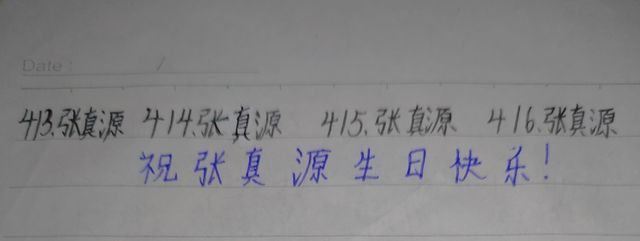 Date: /
413.张真源 414.张真源 415.张真源 416.张真源
祝张真源生日快乐!